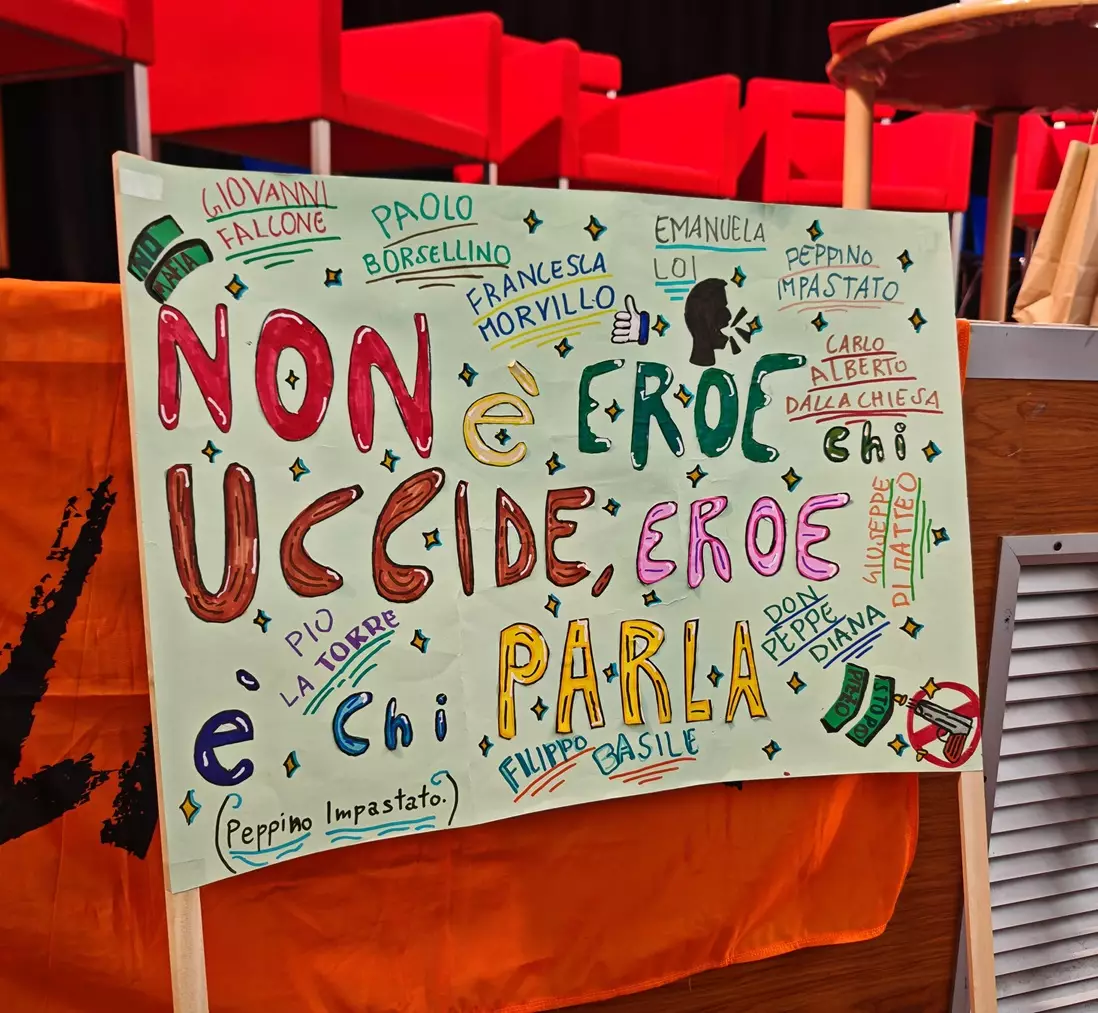 NO
MAFIA
GIOVANNI
FALCONE
PAOLO
BORSELLINO
FRANCESCA
MORVILLO
EMANUELA
LOI
PEPPINO
IMPASTATO
CARLO
ALBERTO
DALLA CHIESA
NON è EROE chi
UCCIDE, EROE
è chi PARLA
GIUSEPPE
DI MATTEO
PIO
LA TORRE
DON
PEPPE
DIANA
FILIPPO BASILE
(Peppino Impastato.)
STOP